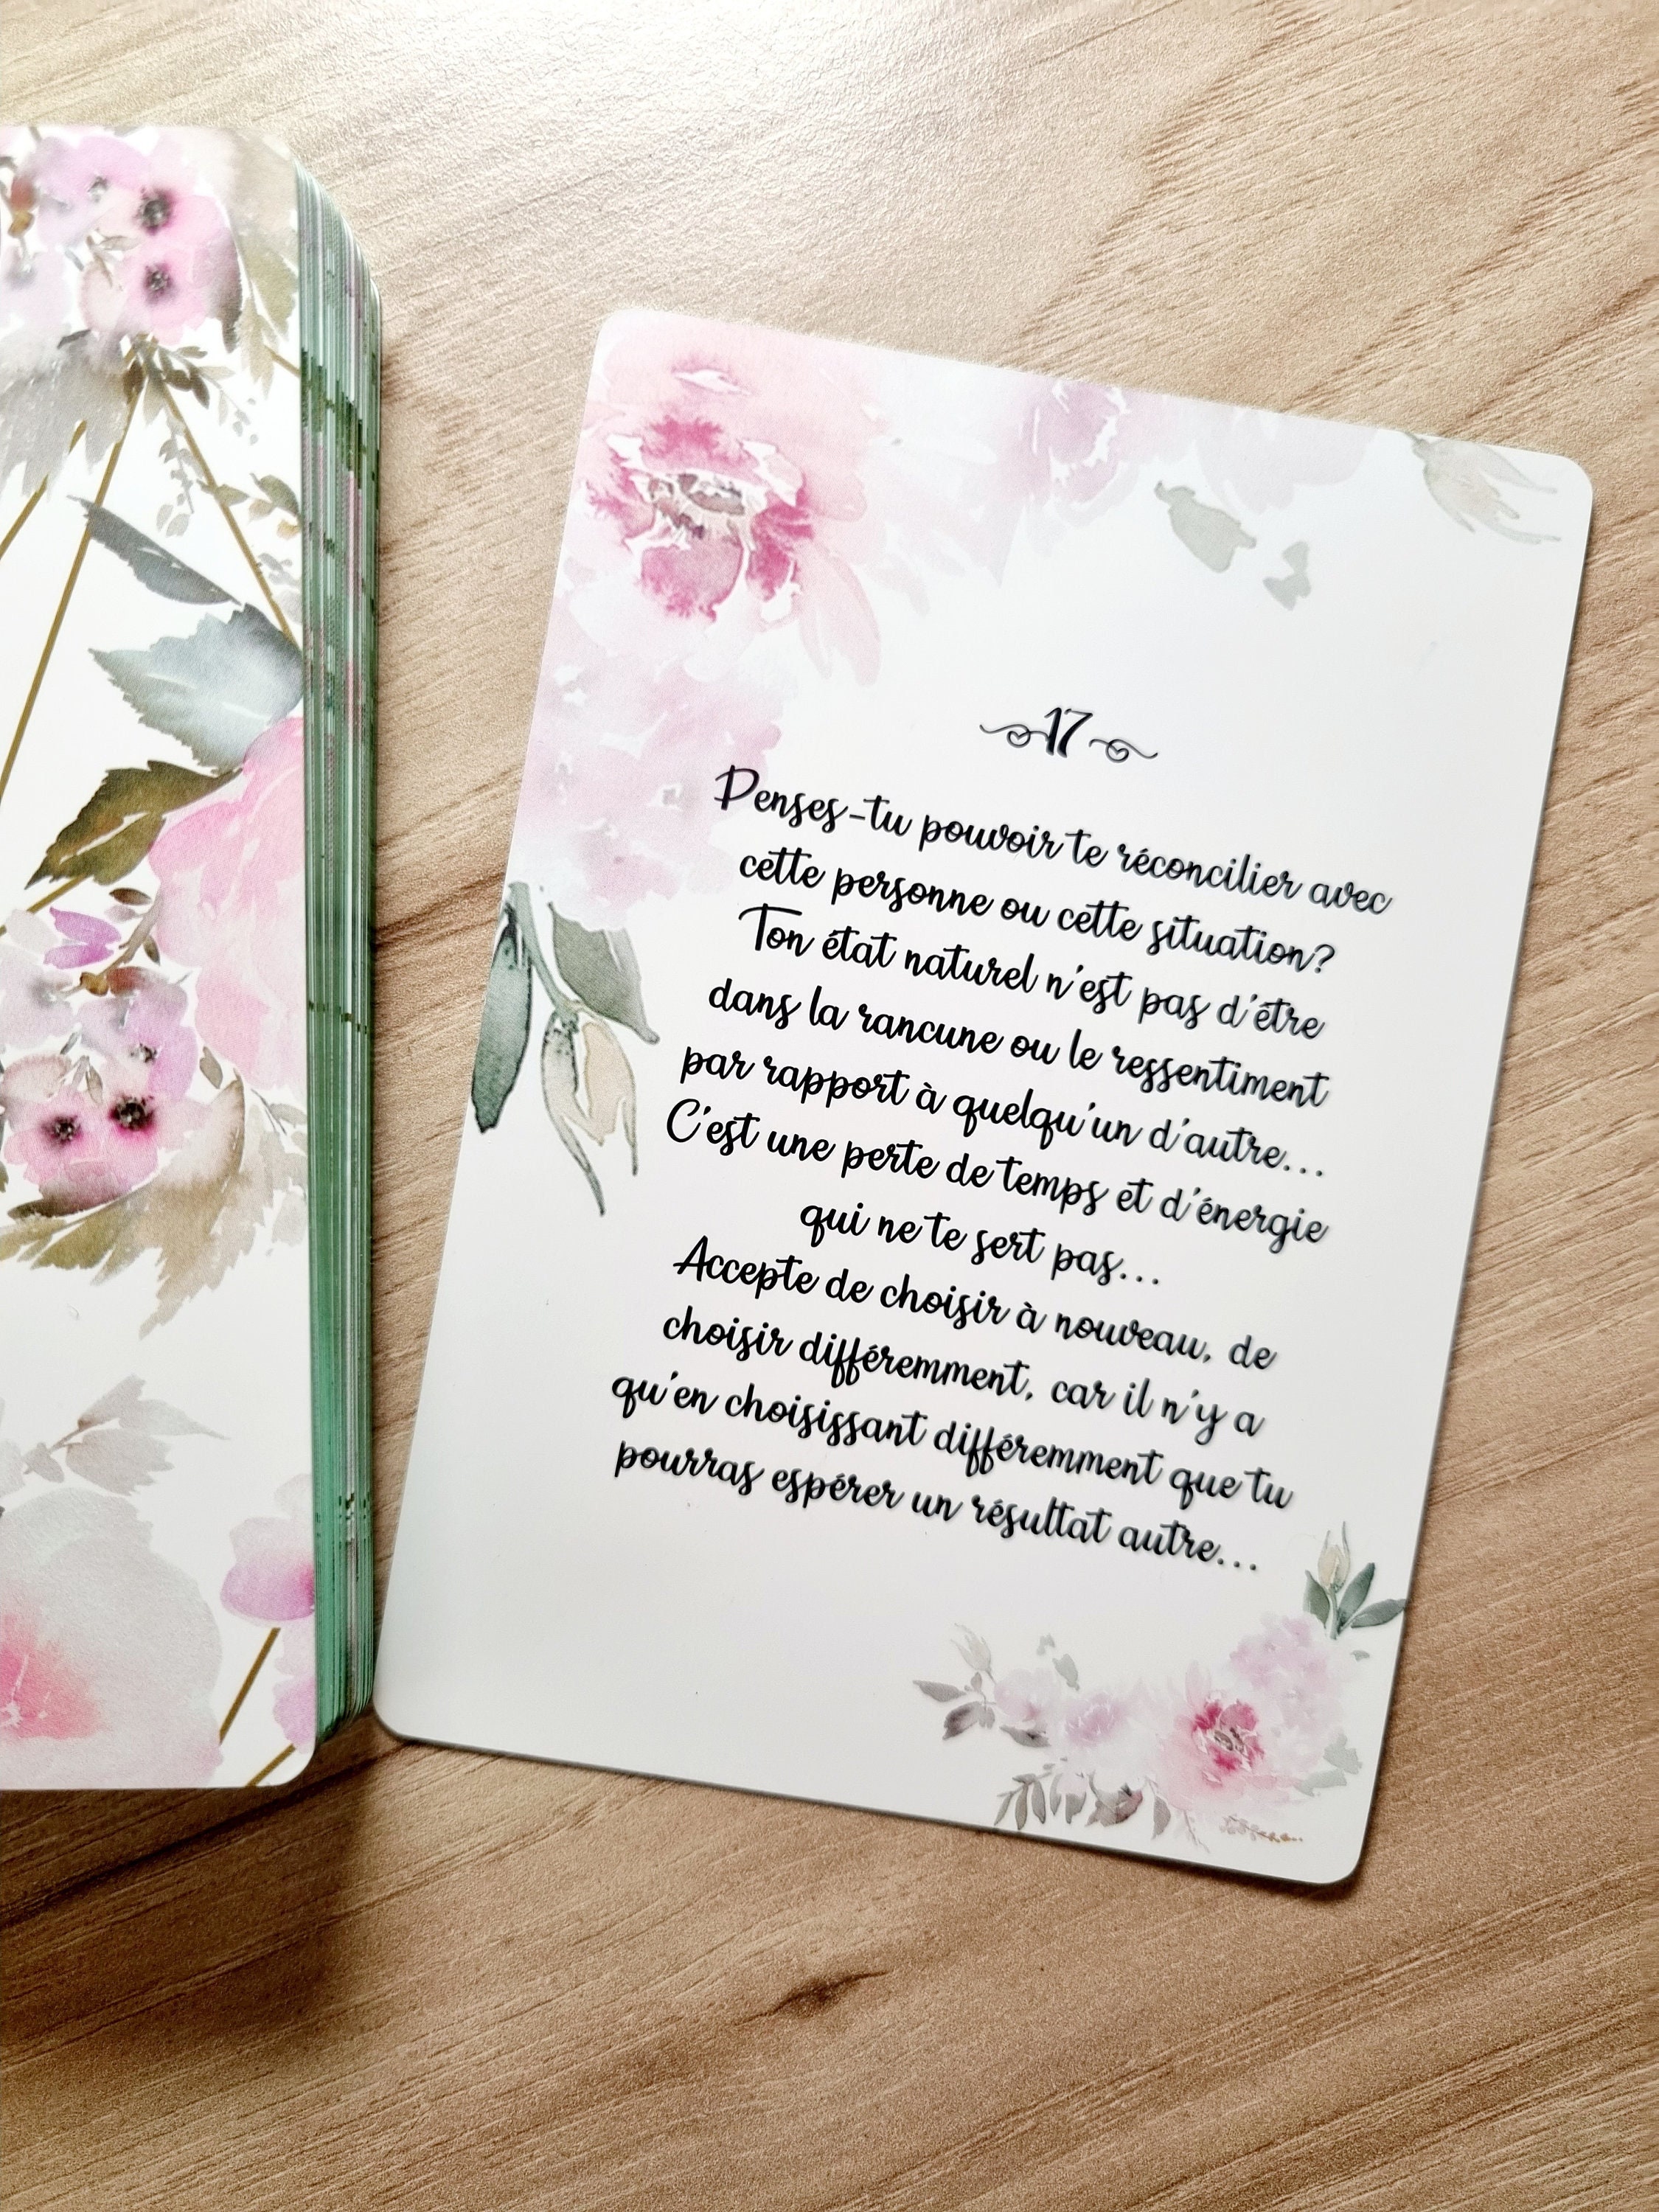 17
Penses-tu pouvoir te réconcilier avec
cette personne ou cette situation?
Ton état naturel n'est pas d'être
dans la rancune ou le ressentiment
par rapport à quelqu'un d'autre...
C'est une perte de temps et d'énergie
qui ne te sert pas...
Accepte de choisir à nouveau, de
choisir différemment, car il n'y a
qu'en choisissant différemment que tu
pourras espérer un résultat autre...